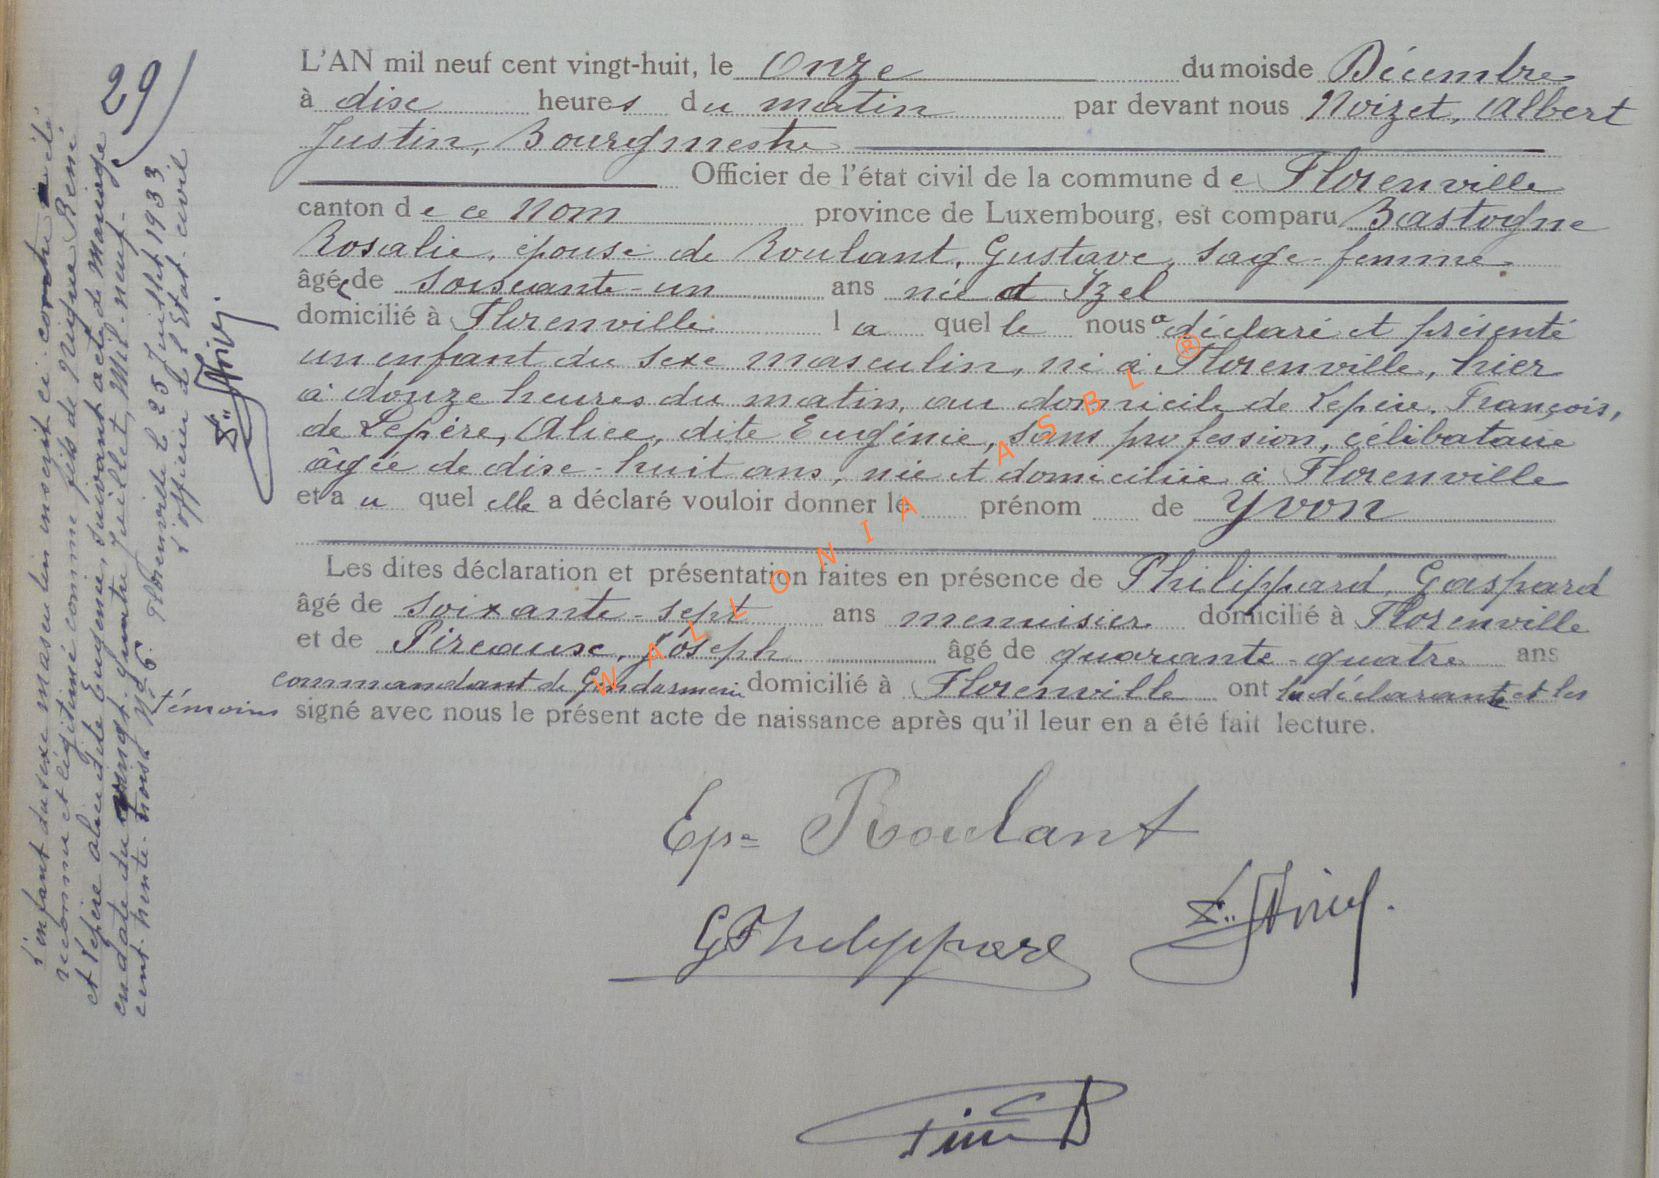 29
L'AN mil neuf cent vingt-huit, le onze du mois de Décembre
à dix heures du matin par devant nous Noizet, Albert
Justin, Bourgmestre
Officier de l'état civil de la commune de Florenville
canton de ce Nom province de Luxembourg, est comparu Bastogne
Rosalie, épouse de Roulant, Gustave, sage-femme
âgée de soixante-un ans née à Izel
domicilié à Florenville laquelle nous a déclaré et présenté
un enfant du sexe masculin, né à Florenville, hier
à douze heures du matin, au domicile de Lepère, François,
de Lepère, Alice, dite Eugénie, sans profession, célibataire
âgée de dix-huit ans, née et domiciliée à Florenville
et au quel elle a déclaré vouloir donner le prénom de Yvon
Les dites déclaration et présentation faites en présence de Philippard, Gaspard
âgé de soixante-sept ans menuisier domicilié à Florenville
et de Pircause, Joseph âgé de quarante-quatre ans
commandant de Gendarmerie domicilié à Florenville ont la déclarante et les
témoins signé avec nous le présent acte de naissance après qu'il leur en a été fait lecture.
Ep= Roulant
GPhilippard
L'enfant du sexe masculin inscrit ci-contre a été
reconnu et légitimé comme fils de René
et Lepère Alice dite Eugénie, suivant acte de mariage
en date du vingt-quatre Juillet, Mil-neuf-
cent-trente-trois N° 6. Florenville le 25 Juillet 1933
L'officier de l'Etat-civil
WALLONIA ASBL ®